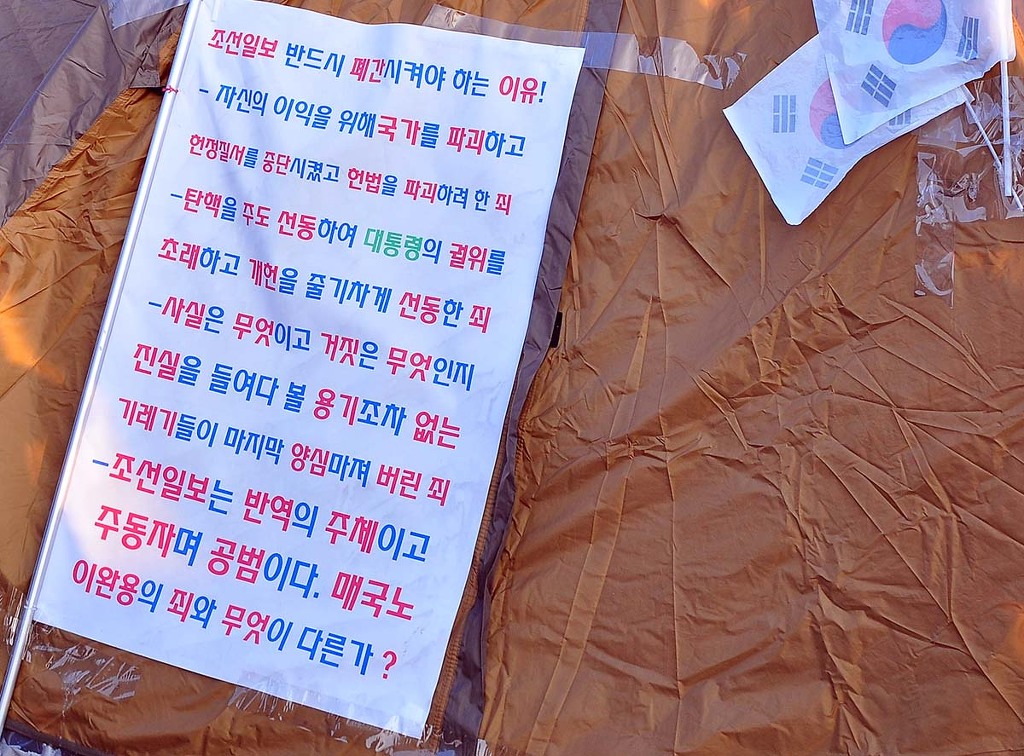 조선일보 반드시 폐간시켜야 하는 이유!
- 자신의 이익을 위해 국가를 파괴하고
헌정질서를 중단시켰고 헌법을 파괴하려 한 죄
-탄핵을 주도 선동하여 대통령의 궐위를
초래하고 개헌을 줄기차게 선동한 죄
-사실은 무엇이고 거짓은 무엇인지
진실을 들여다 볼 용기조차 없는
기레기들이 마지막 양심마져 버린 죄
-조선일보는 반역의 주체이고
주동자며 공범이다. 매국노
이완용의 죄와 무엇이 다른가 ?